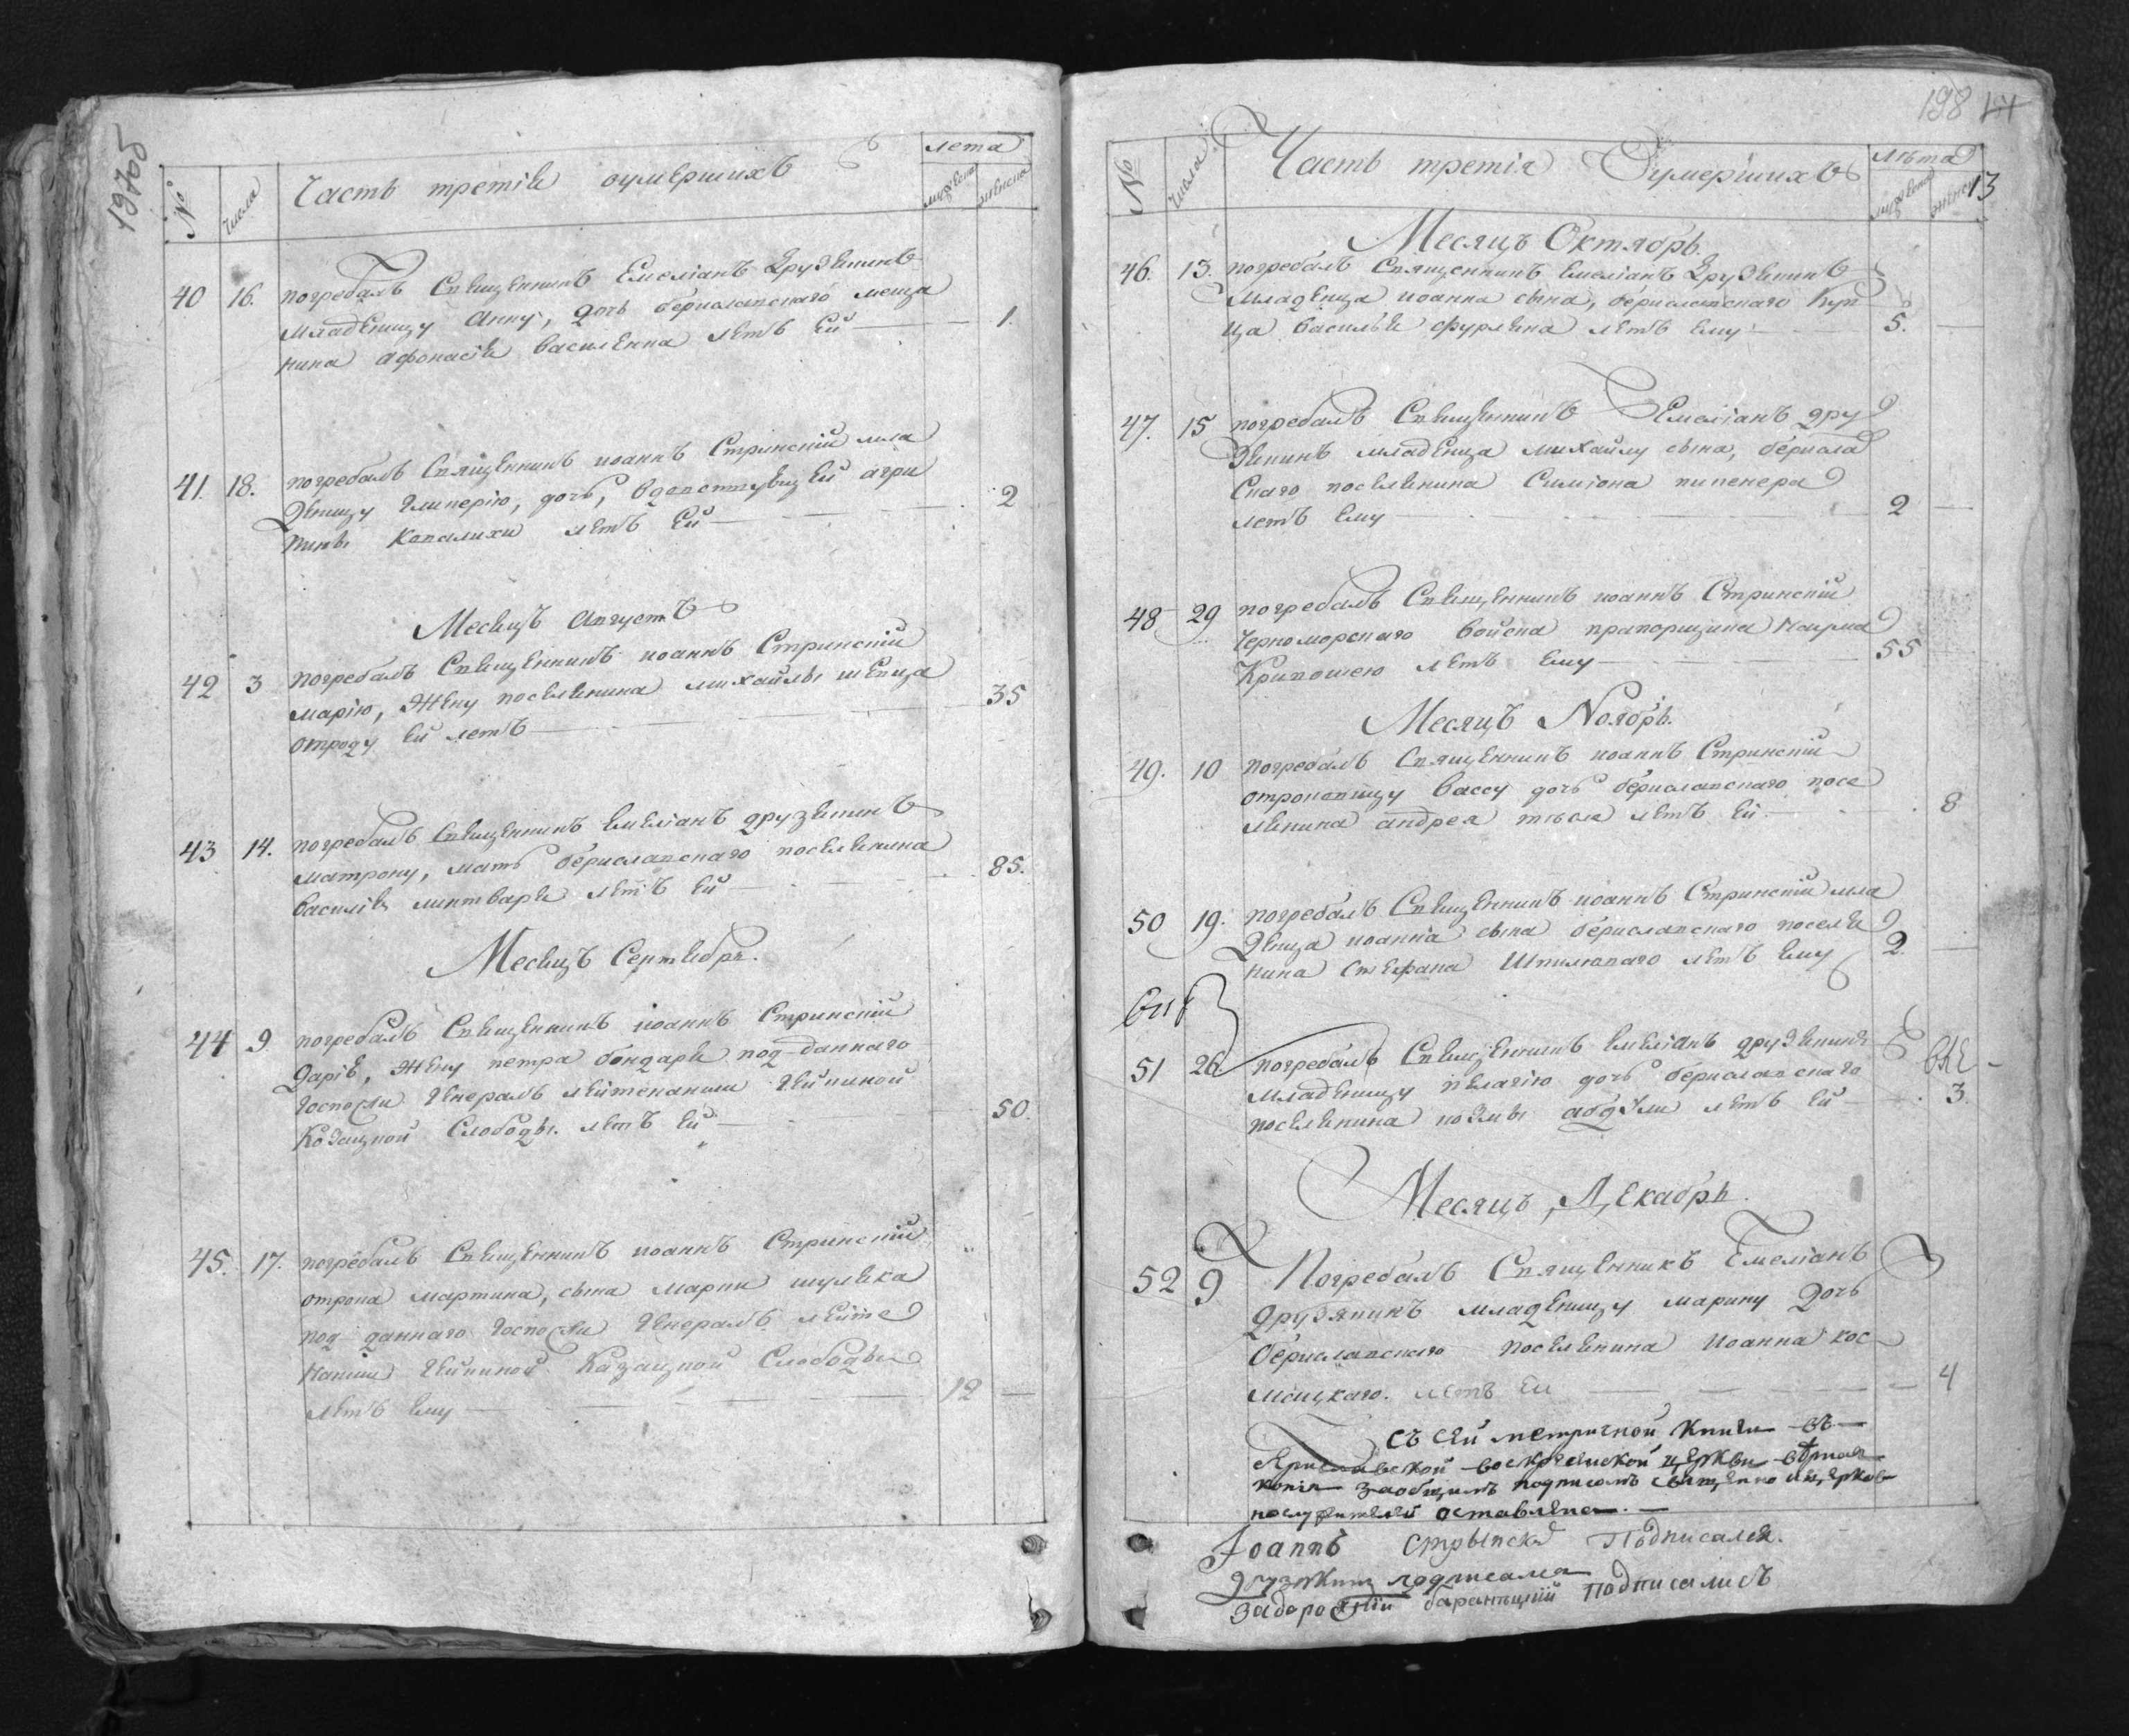 197об
№ Числа Часть третія оумершихъ лета
мужеска женска
40 16. погребалъ Священникъ Емеліанъ Друзякинъ
младеницу Анну, дочь бериславскаго меща
нина афонасія василенка летъ Ей 1.
41. 18. погребалъ Священникъ иоаннъ Стринскій мла
деницу Гликерію, дочь, вдовствующей агри
пины Ковалихи летъ Ей 2
Месяцъ Августъ
42 3 погребалъ Священникъ иоаннъ Стринскій
марію, Жену поселянина михайлы шевца
отроду Ей летъ 35
43 14. погребалъ Священникъ Емеліанъ друзякинъ
матрону, мать бериславскаго поселянина
василія линтваря летъ Ей 85.
Месяцъ Септябрь.
44 9 погребалъ Священникъ иоаннъ Стринскій
Дарію, Жену петра бондаря под-даннаго
Госпожи Генералъ лейтенанши
Козацкой Слободы. летъ Ей 50.
45. 17. погребалъ Священникъ иоаннъ Стринскій
отрока мартина, сына марки шуляка
под даннаго Госпожи Генералъ лейте
нанши Казацкой Слободы
летъ Ему 12
198
№ Числа Часть третія Оумершихъ Лѣта
мужеска женска 13
Месяцъ Октябрь.
46. 13. погребалъ Священникъ Емеліанъ Друзякинъ
Младенца иоанна сына, бериславскаго Куп
ца василія фурлена летъ Ему 5.
47. 15 погребалъ Священникъ Емеліанъ дру
зякинъ младенца михайлу сына, берисла
скаго поселянина Симіона пипенера
летъ Ему 2
48 29 погребалъ Священникъ иоаннъ Стринскій
Черноморскаго войска прапорщика Наума
Кривошею летъ Ему 55
Месяцъ Ноябрь.
49. 10 погребалъ Священникъ иоаннъ Стринскій
отроковицу вассу дочь бериславскаго посе
лянина андрея тъсля летъ Ей 8
50 19. погребалъ Священникъ иоаннъ Стринскій мла
денца иоанна сына бериславскаго поселя
нина Стефана Шпилеваго летъ Ему 2.
51 26. погребалъ Священникъ Емеліанъ друзякинъ
младеницу пелагію дочь бериславскаго
поселянина козмы абдули летъ Ей 3.
Месяцъ Декабрь.
52 9 Погребалъ Священникъ Емеліанъ
Друзякинъ младеницу марину Дочь
бериславскаго поселянина Иоанна кос
мицкаго. летъ Ей 4
съ сей метричной книги въ
Бериславской воскресенской церкви вѣрная
копія заобщимъ подписомъ священно и церковно
служителей оставлена.
Іоаннъ Стрынскій Подписался.
друзякинъ подписался
Забарожній баранецкій подписались